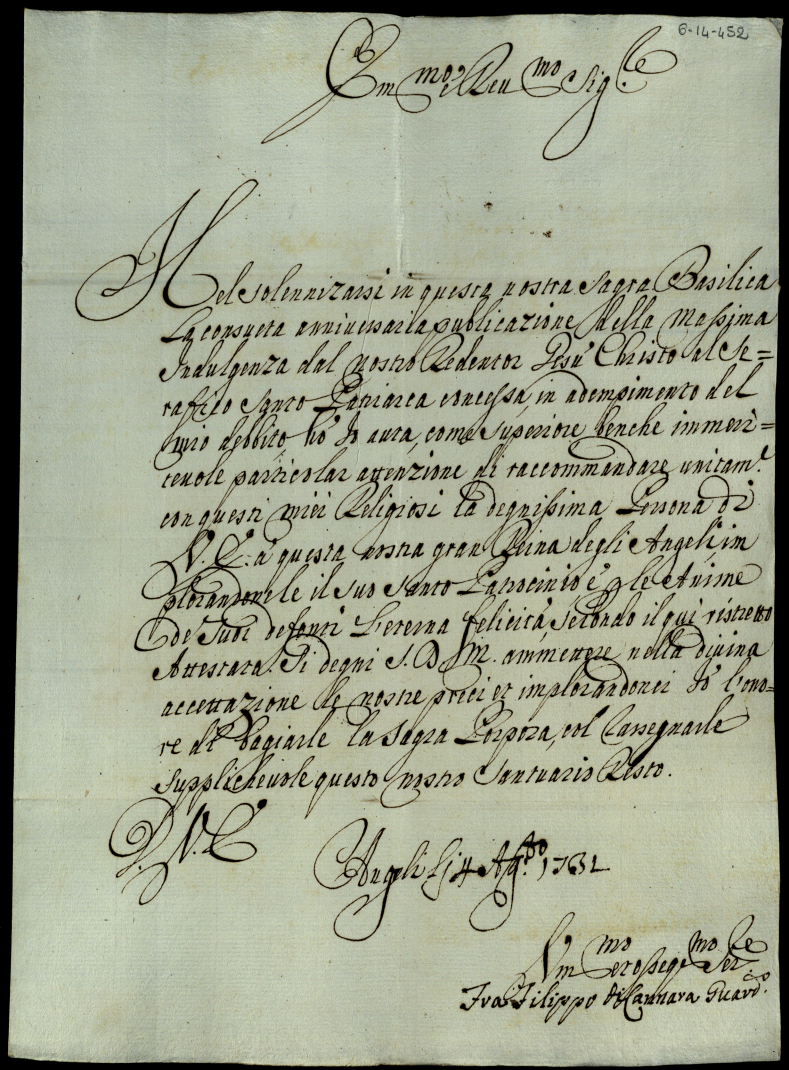 6-14-452
Em.mo e Reu.mo Sig.re
Nel solennizarsi in questa nostra Sagra Basilica
La consueta anniuersaria publicazione della Massima
Indulgenza dal nostro Redentor Gesù Christo al Se=
raffico Santo Patriarca concessa, in adempimento del
mio debbito, hò Io auta, come Superiore benche immeri=
teuole particolar attenzione di raccommandare unitam.e
con questi miei Religiosi la degnissima Persona di
V. E. à questa nostra gran Reina degli Angeli im
plorandonele il suo Santo Patrocinio è le Anime
de' Suoi defonti L'eterna felicità, Secondo il qui ristretto
Attestato. Si degni S. D. M. ammettere nella diuina
accettazione le nostre preci et implorandonci Io l'ono=
re di bagiarle la Sagra Porpora, col Rassegnarle
Supplicheuole questo nostro Santuario Resto.
D. V. E.
Angeli Li 4 Ag.sto 1731
Um.mo et osseq.mo Ser.re
Fra Filippo di Cannara Guard.o